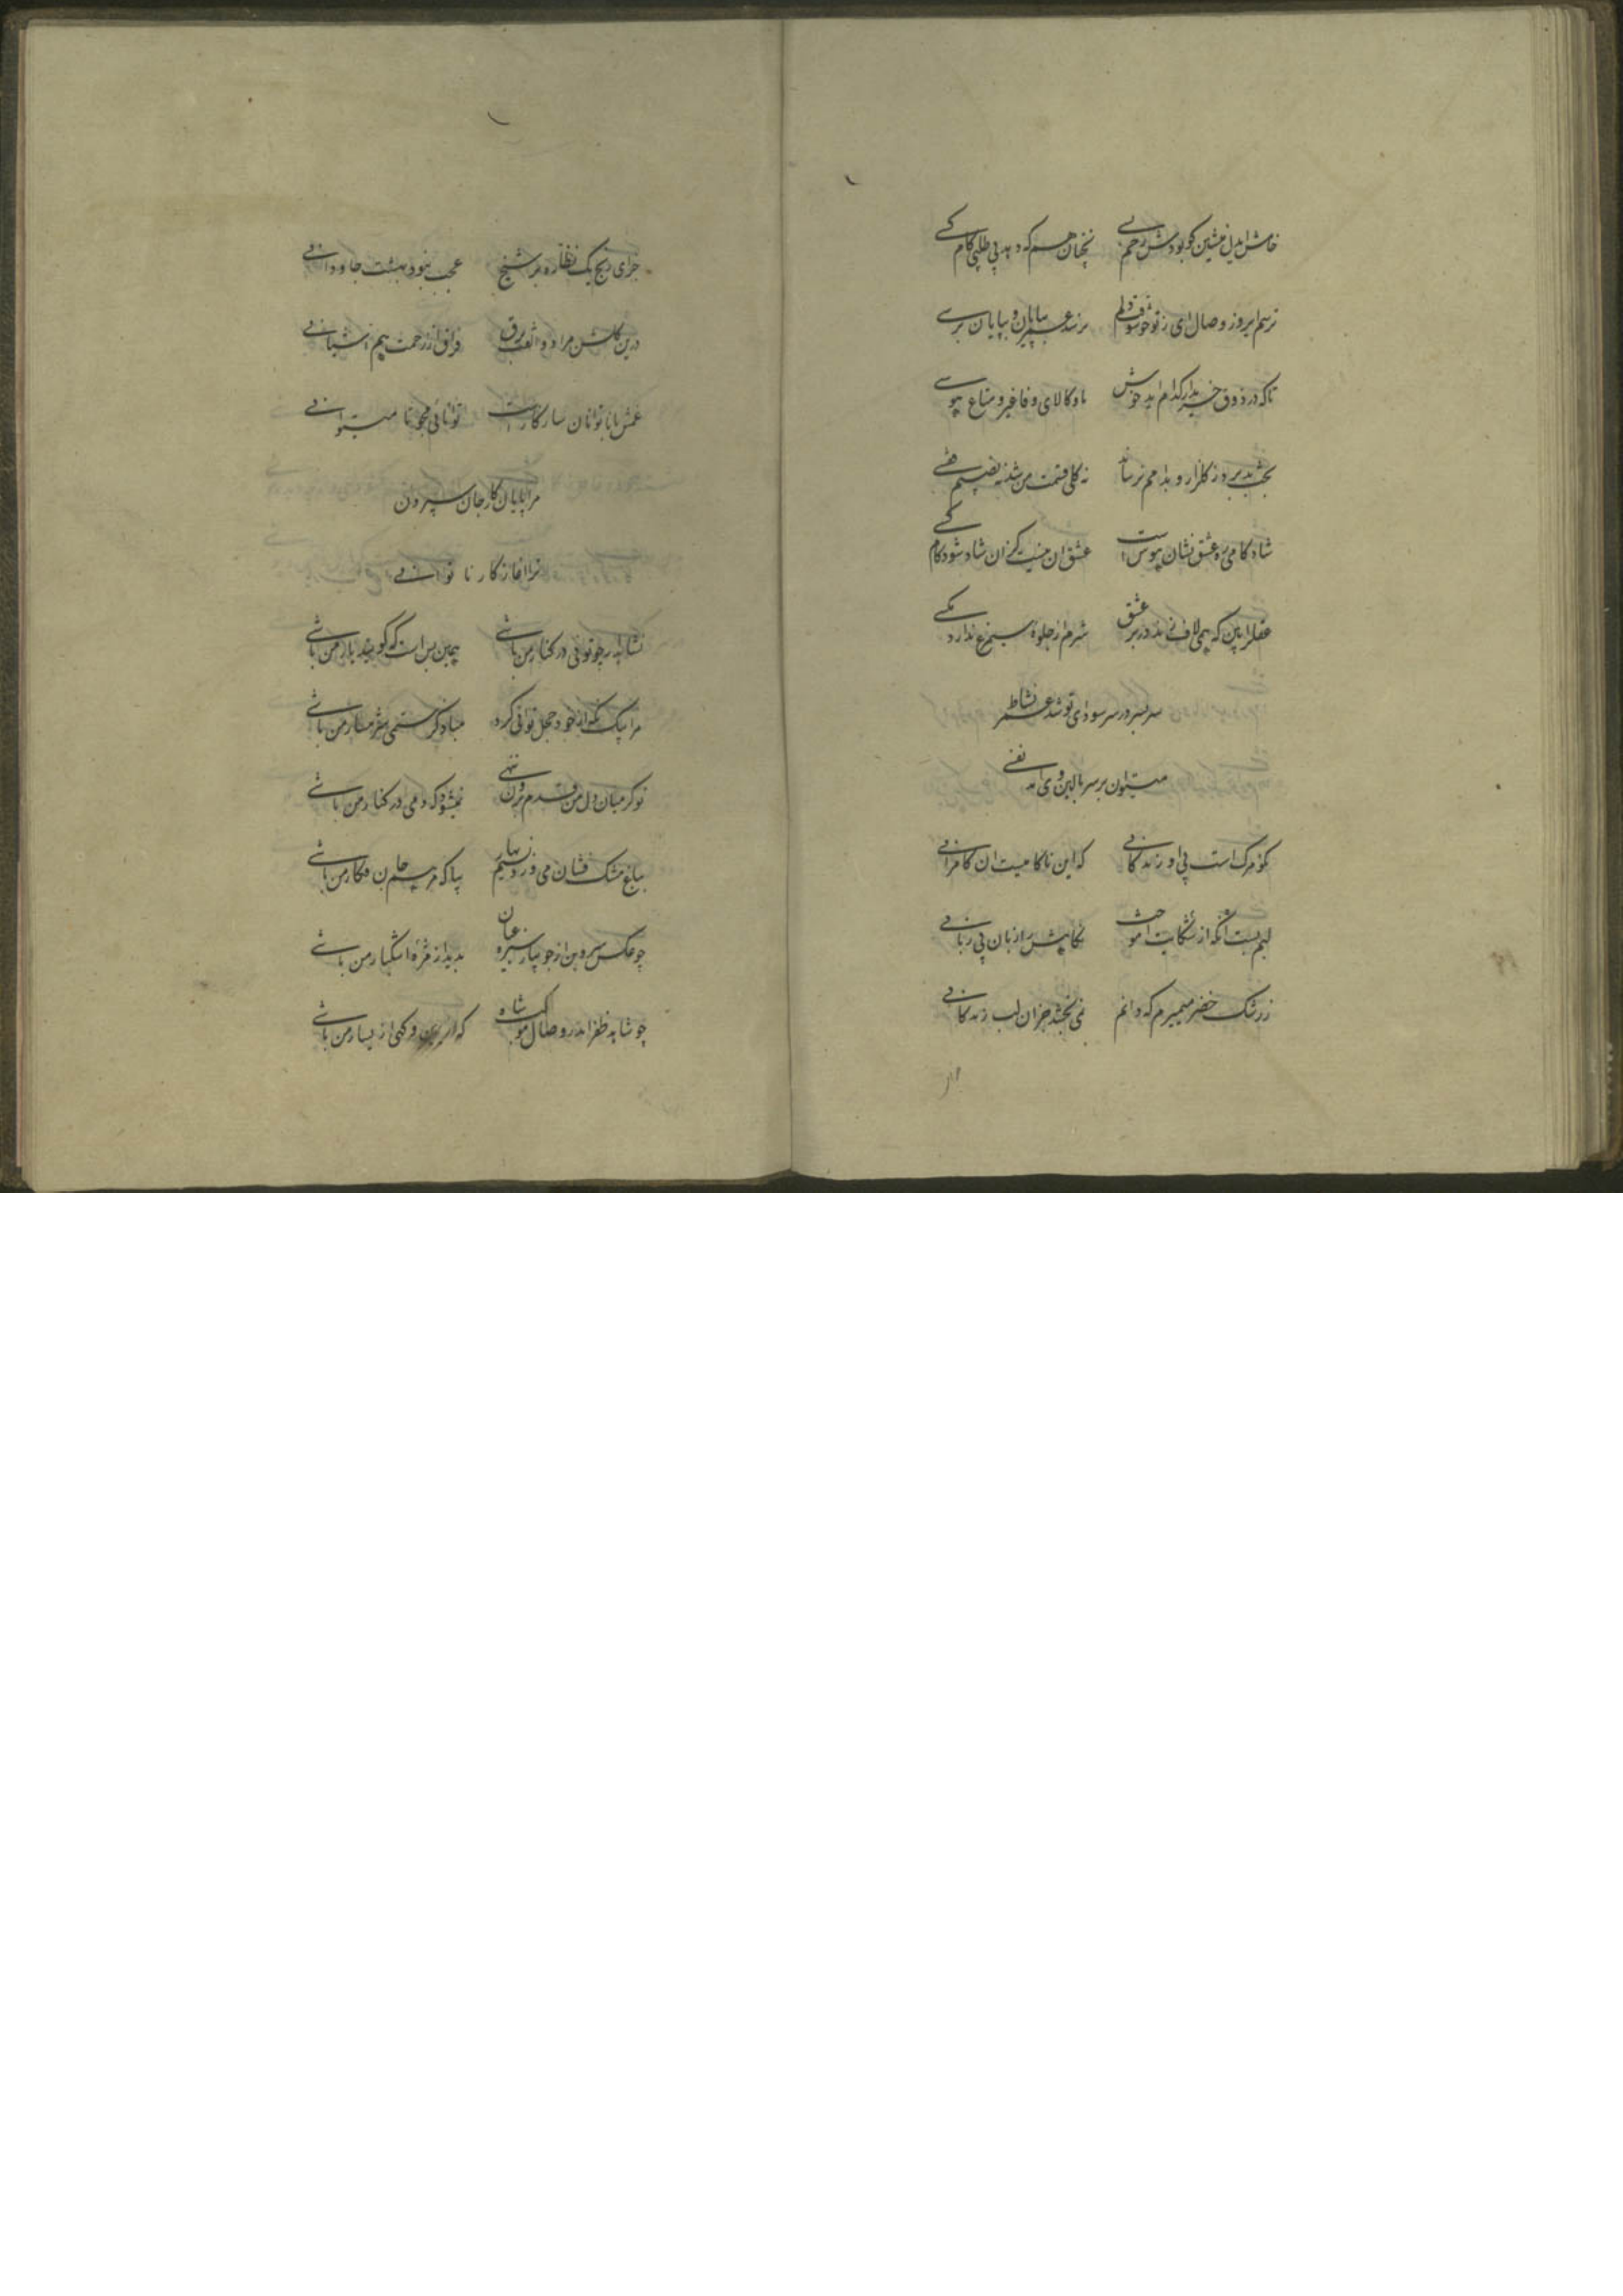 خامش ایدل منشین کو بودش رحم بسی نه چنان هم که دهد بی طلبی کام کسی
ترسم ایروز وصال ای ز تو خوش وقت دلم نرسد عمر بپایان و بپایان برسی
تا که در ذوق خریدار کدام اید خوش ما و کالای وفا غیر و متاع هوسی
نه گلی قسمت من شد نه نصیبم قفسی
شادکامی به ره عشق نشان هوس است عشق ان نیست کزان شاد شود کام کسی
عقل را بین که همی لاف زند در بر عشق شرم از جلوه سیمرغ ندارد مگسی
سر بسر در سر سودای تو شد عمر نشاط
میتوان بر سر بالین وی امد نفسی
نکو مرگ است بی او زندگانی که این ناکامیست ان کامرانی
لبم بست انکه از شکایت نگاهش راز بان بی زبانی
ز رشک خضر میمیرم که دانم نمی بخشد جز ان لب زندگانی
جزای رنج یک نظاره بر شیخ عجب نبود بهشت جاودانی
درین گلشن مرا و برق فراق از زحمت هم اشیانی
غمش با ناتوانان سازگار است توانائی مجو تا میتوانی
مرا پایان کار جان سپردن
ترا اغاز کار ناتوانی
نشاید چو توئی در کنار من باشی همین بس است که گویند یار من باشی
مرا بیک نگه از خود خجل توانی کرد مباد کز ستمی شرمسار من باشی
تو کز میان دل من قدم برون ننهی نمیشود که دمی در کنار من باشی
بباغ مشک فشان می وزد نسیم بهار بیا که مرهم جان فکار من باشی
چو عکس سرو بن از جویبار سبزه عیان بدیده از مژه اشکبار من باشی
چو شاید ظفر اندر وصال موکب شاه که از یمین و گهی از یسار من باشی